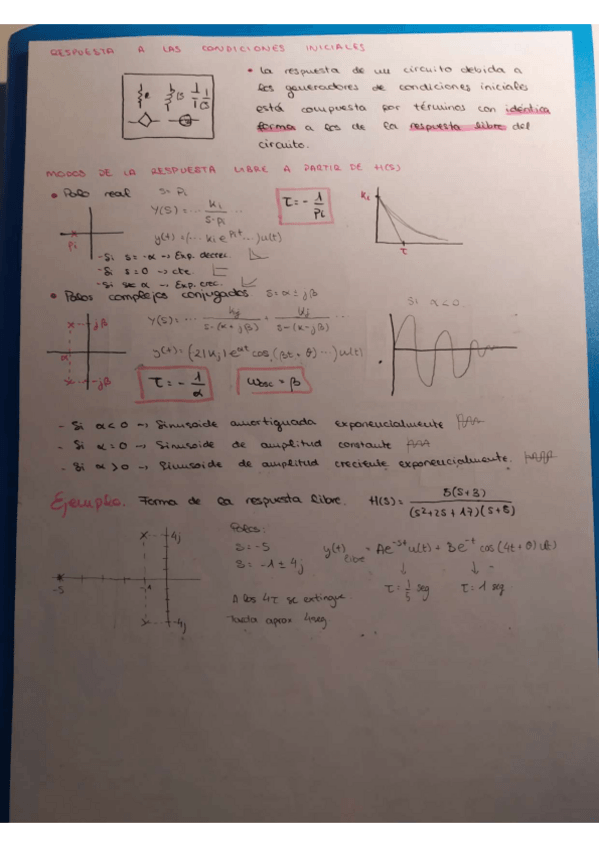 RESPUESTA A LAS CONDICIONES INICIALES
• La respuesta de un circuito debida a
los generadores de condiciones iniciales
está compuesta por términos con idéntica
forma a los de la respuesta libre del
circuito.
MODOS DE LA RESPUESTA LIBRE A PARTIR DE H(S)
• Polo real S = Pi
Y(S) = ... Ki / S-Pi ...
τ = - 1/Pi
y(t) = (... Ki e^Pit ...) u(t)
Pi
Ki
τ
- Si s = -α → Exp. decrec.
- Si s = 0 → cte
- Si s = α → Exp. crec.
• Polos complejos conjugados S = α ± jβ
Si α < 0.
jβ
α
-jβ
Y(S) = ... Kj / S-(α+jβ) + Kj / S-(α-jβ)
y(t) = (2|Kj| e^αt cos(βt + θ) ...) u(t)
τ = - 1/α
Wosc = β
- Si α < 0 → Sinusoide amortiguada exponencialmente
- Si α = 0 → Sinusoide de amplitud constante
- Si α > 0 → Sinusoide de amplitud creciente exponencialmente.
Ejemplo. Forma de la respuesta libre. H(S) = 5(S+3) / (S²+2S+17)(S+5)
4j
-5
-1
-4j
Polos:
S = -5
S = -1 ± 4j
y(t) libre = Ae^-5t u(t) + Be^-t cos(4t+θ) u(t)
τ = 1/5 seg
τ = 1 seg
A los 4τ se extingue
Hasta aprox 4seg.